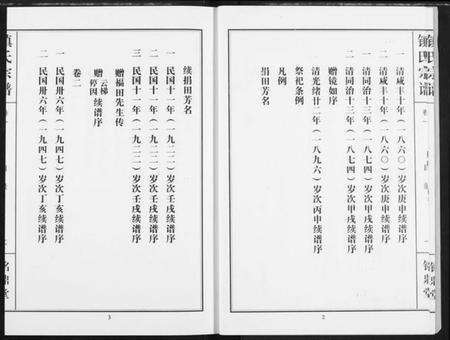 一 清咸丰十年（一八六〇）岁次庚申续谱序
二 清咸丰十年（一八六〇）岁次庚申续谱序
一 清同治十三年（一八七四）岁次甲戌续谱序
二 清同治十三年（一八七四）岁次甲戌续谱序
赠镜如序
清光绪廿二年（一八九六）岁次丙申续谱序
祭祀条例
凡例
捐田芳名
2
续捐田芳名
一 民国十一年（一九二二）岁次壬戌续谱序
二 民国十一年（一九二二）岁次壬戌续谱序
三 民国十一年（一九二二）岁次壬戌续谱序
赠福田先生传
赠云梯
停四续谱序
卷二
一 民国卅六年（一九四七）岁次丁亥续谱序
二 民国卅六年（一九四七）岁次丁亥续谱序
3
氏宗谱